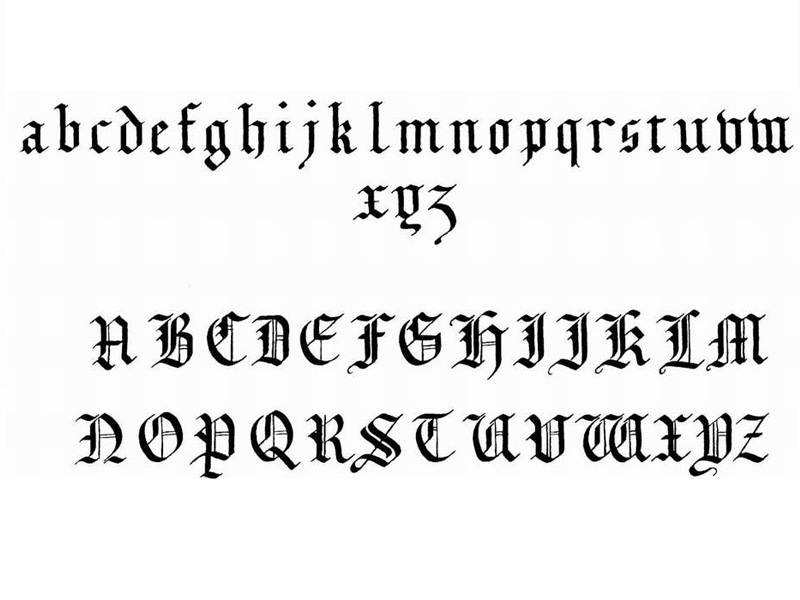 abcdefghijklmnopqrstuvw
xyz
ABCDEFGHIJKLM
NOPQRSTUVWXYZ